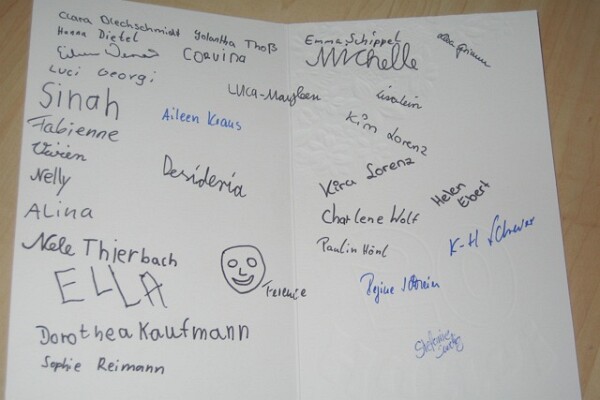 Clara Olechschmidt Yolantha Thoß
Hanna Dietel
Corvina
Luci Georgi
Sinah
Aileen Kraus
Fabienne
Vivien
Nelly
Desideria
Alina
Nele Thierbach
ELLA
Dorothea Kaufmann
Sophie Reimann
Emma Schippel
Michelle
Luca-Mayleen
Kim Lorenz
Kira Lorenz
Helen
Ebert
Charlene Wolf
Paulin Hönl
K-H
Regine
Stefanie